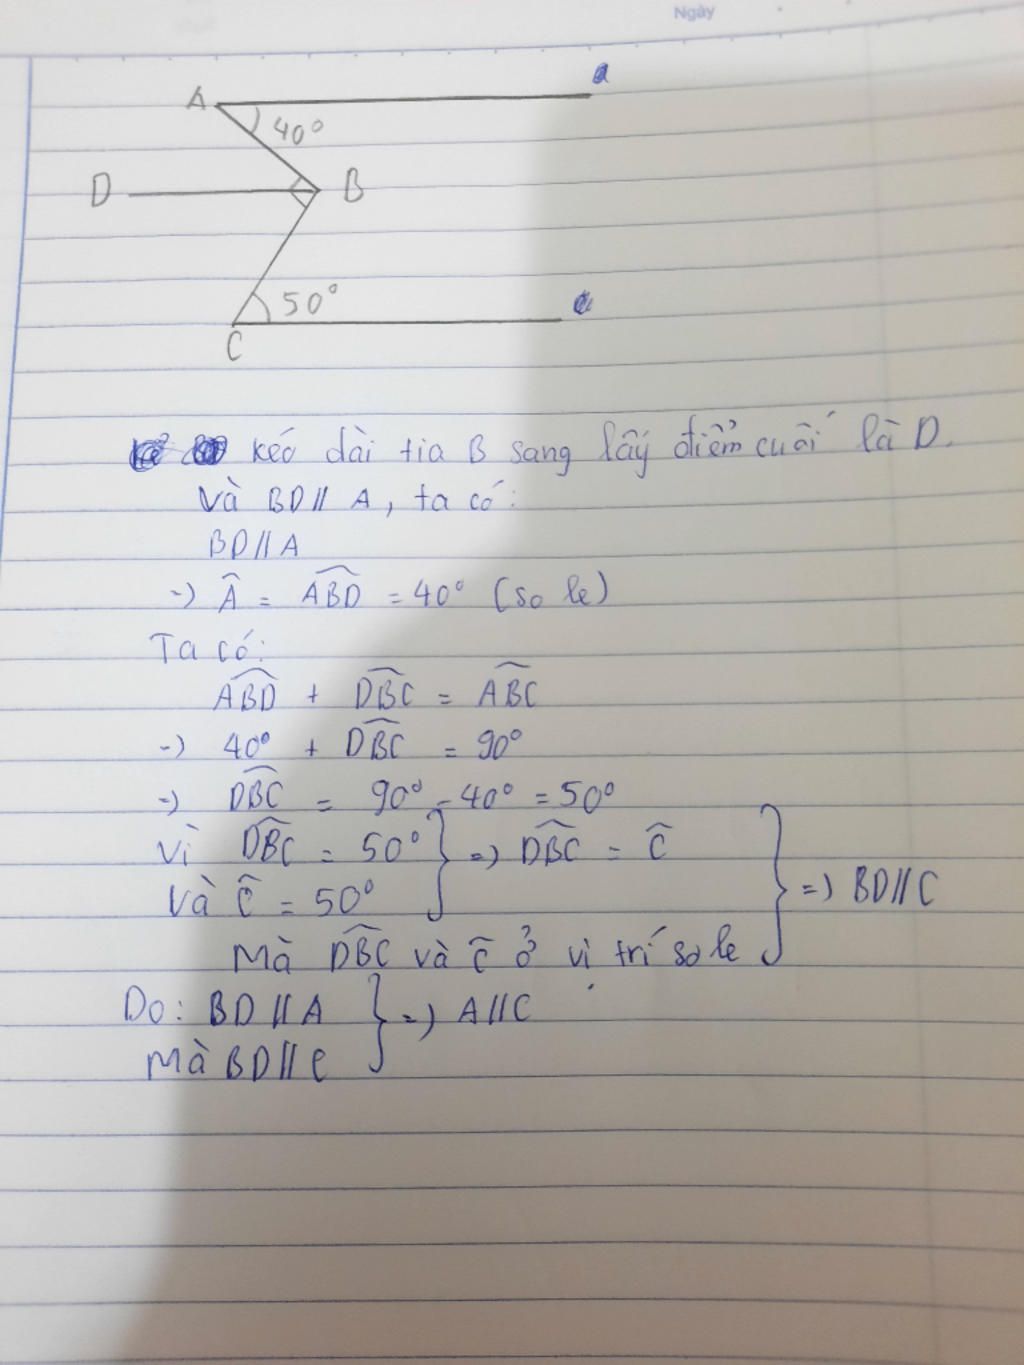 Ngày
a
A
40°
D
B
50°
c
C
kéo dài tia B sang lấy điểm cuối là D.
Và BD // A, ta có:
BD // A
=) Â = ABD = 40° (so le)
Ta có:
ABD + DBC = ABC
=) 40° + DBC = 90°
=) DBC = 90° - 40° = 50°
Vì DBC = 50° } =) DBC = Ĉ
Và Ĉ = 50°
} =) BD // C
Mà DBC và Ĉ ở vị trí so le
Do: BD // A } =) A // C
Mà BD // C